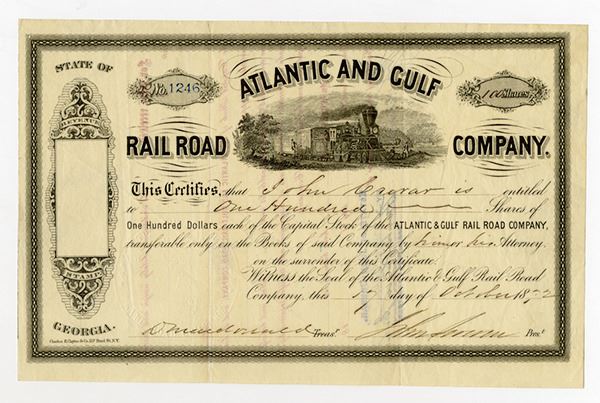 STATE OF
REVENUE
STAMP
GEORGIA.
No. 1246
100 Shares
ATLANTIC AND GULF
RAIL ROAD COMPANY.
This Certifies, that John is entitled
to One Hundred Shares of
One Hundred Dollars each of the Capital Stock of the ATLANTIC & GULF RAIL ROAD COMPANY,
transferable only on the Books of said Company by him or his Attorney.
on the surrender of this Certificate.
Witness the Seal of the Atlantic & Gulf Rail Road
Company, this day of October 18
Treasr. John Prest.